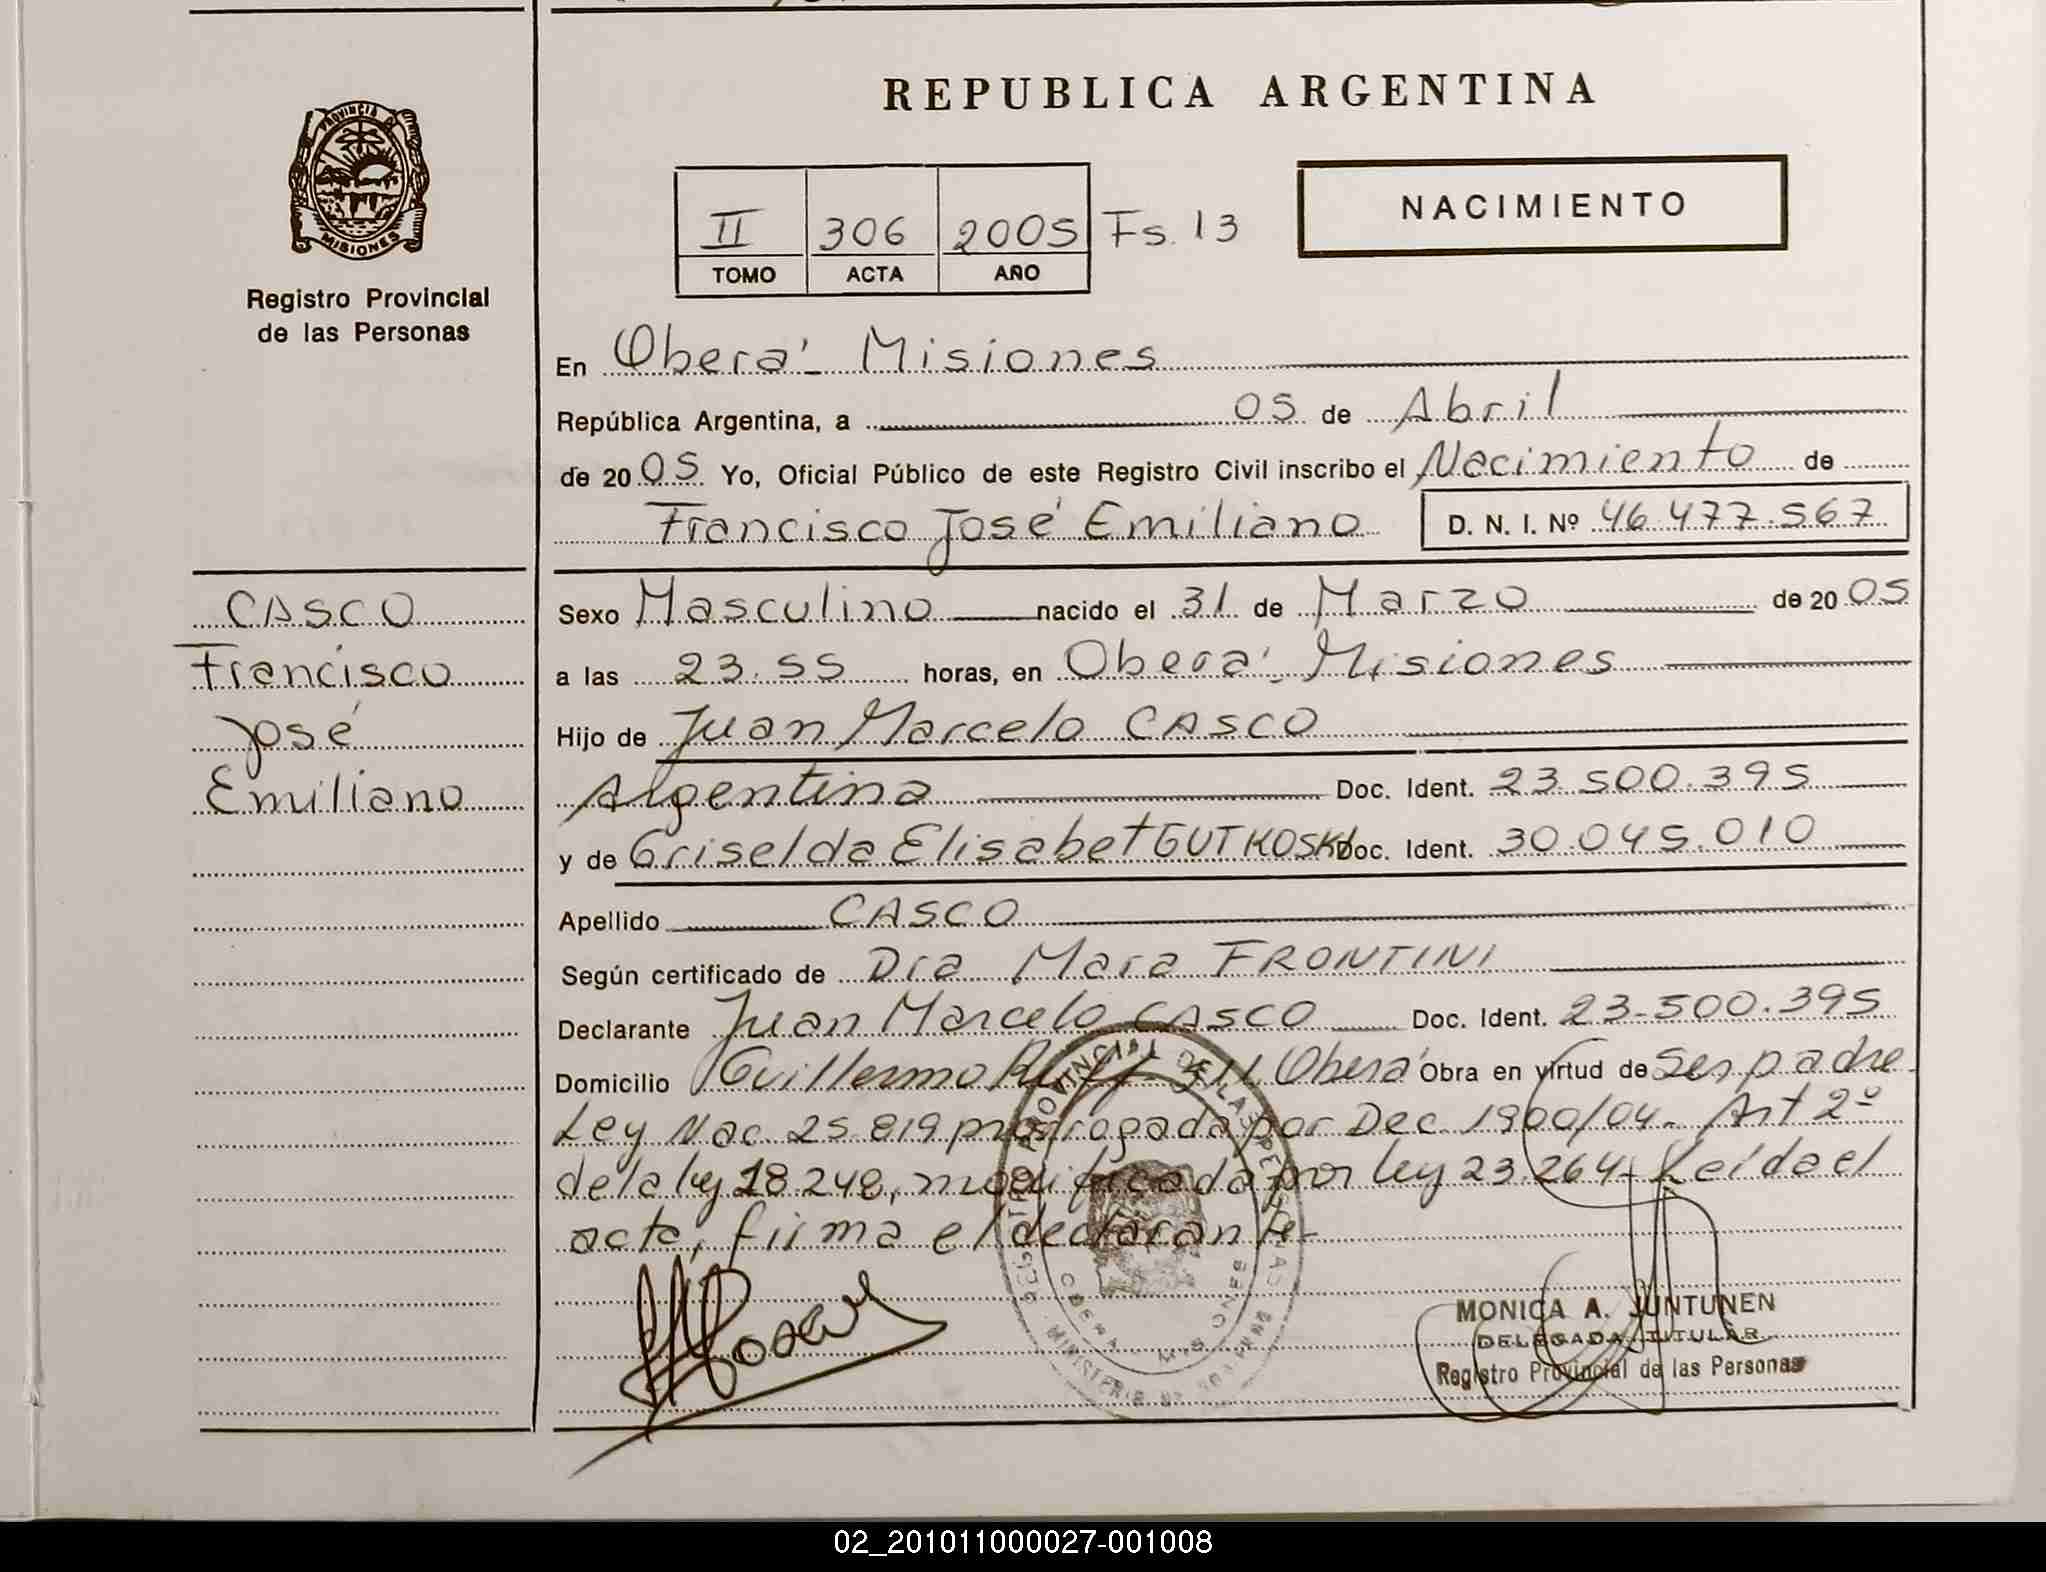 REPUBLICA ARGENTINA
PROVINCIA DE
MISIONES
Registro Provincial
de las Personas
II 306 2005 Fs. 13
TOMO ACTA AÑO
NACIMIENTO
En Oberá - Misiones
República Argentina, a 05 de Abril
de 2005 Yo, Oficial Público de este Registro Civil inscribo el Nacimiento de
Francisco José Emiliano D. N. I. Nº 46.477.567
CASCO
Francisco
José
Emiliano
Sexo Masculino nacido el 31 de Marzo de 2005
a las 23.55 horas, en Oberá - Misiones
Hijo de Juan Marcelo CASCO
Argentina Doc. Ident. 23.500.395
y de Griselda Elisabet GUTKOSKI Doc. Ident. 30.045.010
Apellido CASCO
Según certificado de Dra Mara FRONTINI
Declarante Juan Marcelo CASCO Doc. Ident. 23-500.395
Domicilio Guillermo Oberá Obra en virtud de Ser padre
Ley Nac. 25.819 prorrogada por Dec. 1900/04. Art 2º
de la ley 18.248, modificada por ley 23.264 - Leída el
acta, firma el declarante -
MONICA A. JUNTUNEN
DELEGADA TITULAR
Registro Provincial de las Personas
02_201011000027-001008